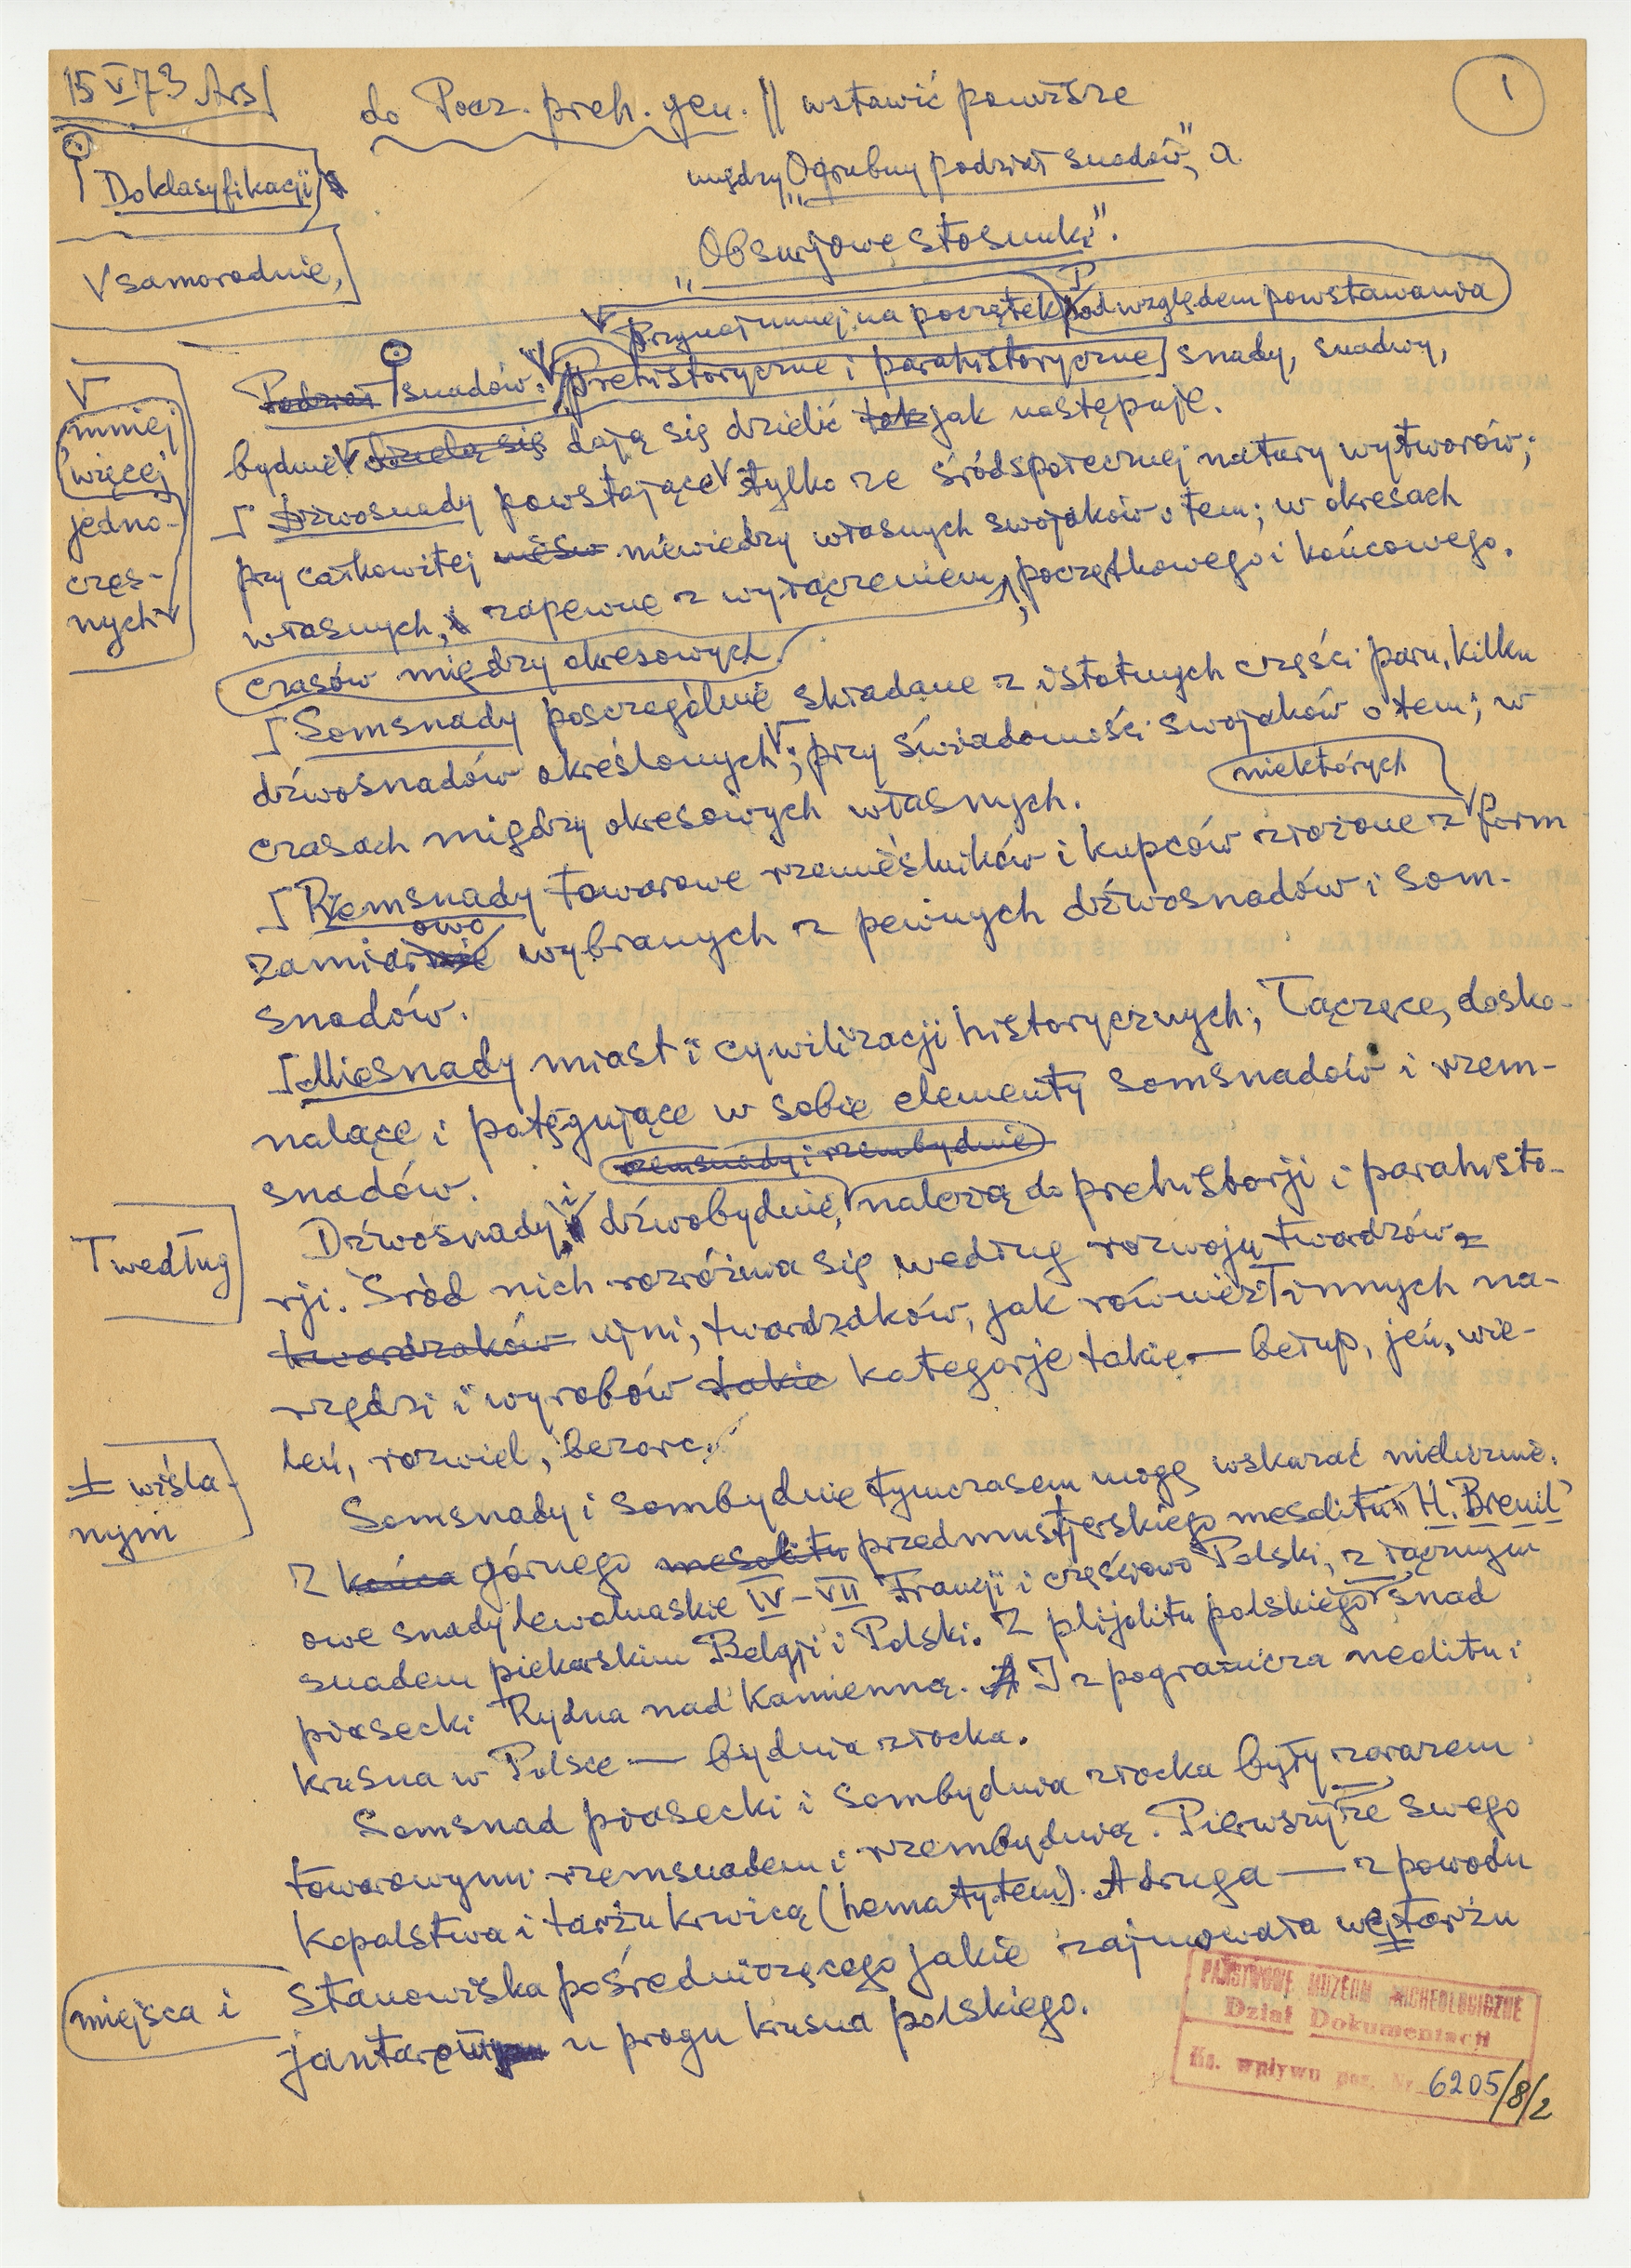 15 V 73 Ars
1
do Pocz. preh. gen. || wstawić powższe
między „Ogrubny podział snadów”, a
„Obsnijowe stosunki”.
Do klasyfikacji
V samorodnie,
Przynajmniej na początek Pod względem powstawania
Podział snadów. Prehistoryczne i parahistoryczne] snady, snadwy,
bydnie V dzielą się dają się dzielić tak jak następuje.
V mniej
więcej
jedno-
czes-
nych V
[ Dźwosnady powstające V tylko ze śródspołecznej natury wytworów;
przy całkowitej nieświ niewiedzy własnych swojaków o tem; w okresach
własnych, zapewne z wyłączeniem, początkowego i końcowego.
czasów między okresowych
[ Somsnady poszczególnie składane z istotnych części paru, kilku
dźwosnadów określonych V; przy świadomości swojaków o tem; w
czasach między okresowych własnych.
niektórych
[ Rzemsnady towarowe rzemieślników i kupców złożone z V form
owo
zamiarnie wybranych z pewnych dźwosnadów i som-
snadów.
[ Miesnady miast i cywilizacji historycznych; łączące, dosko-
nalące i potęgujące w sobie elementy somsnadów i rzem-
snadów.
rzemsnady i rzembydnie
Dźwosnady i dźwobydnie, V należą do prehistorji i parahisto-
rji. Śród nich rozróżnia się według rozwoju twardzów z
T według
twardzaków nimi, twardzdków, jak również T innych na-
rzędzi i wyrobów takie kategorje takie — bełup, jeń, wie-
leń, rozwiel, bezorc.
Somsnady i sombydnie tymczasem mogę wskazać nieliczne.
± wiśla-
nym
Z końca górnego mesolitu przedmustjerskiego mesolitu „H. Breuil”
owe snady lewaluaskie IV–VII Francji i częściowo Polski, z łącznym
snadem piekarskim Belgji i Polski. Z plijolitu polskiego snad
piasecki Rydna nad Kamienną. A I z pogranicza neolitu i
krusna w Polsce — bydnia złocka.
Somsnad piasecki i sombydnia złocka były zarazem
towarowymi rzemsnadem i rzembydnią. Pierwszy ze swego
kopalstwa i tarżu krwicą (hematytem). A druga — z powodu
miejsca i
stanowiska pośredniczącego jakie zajmowała w tarżu
jantarowym u progu krusna polskiego.
PAŃSTWOWE MUZEUM ARCHEOLOGICZNE
Dział Dokumentacji
Ks. wpływu poz. Nr 6205/8/2